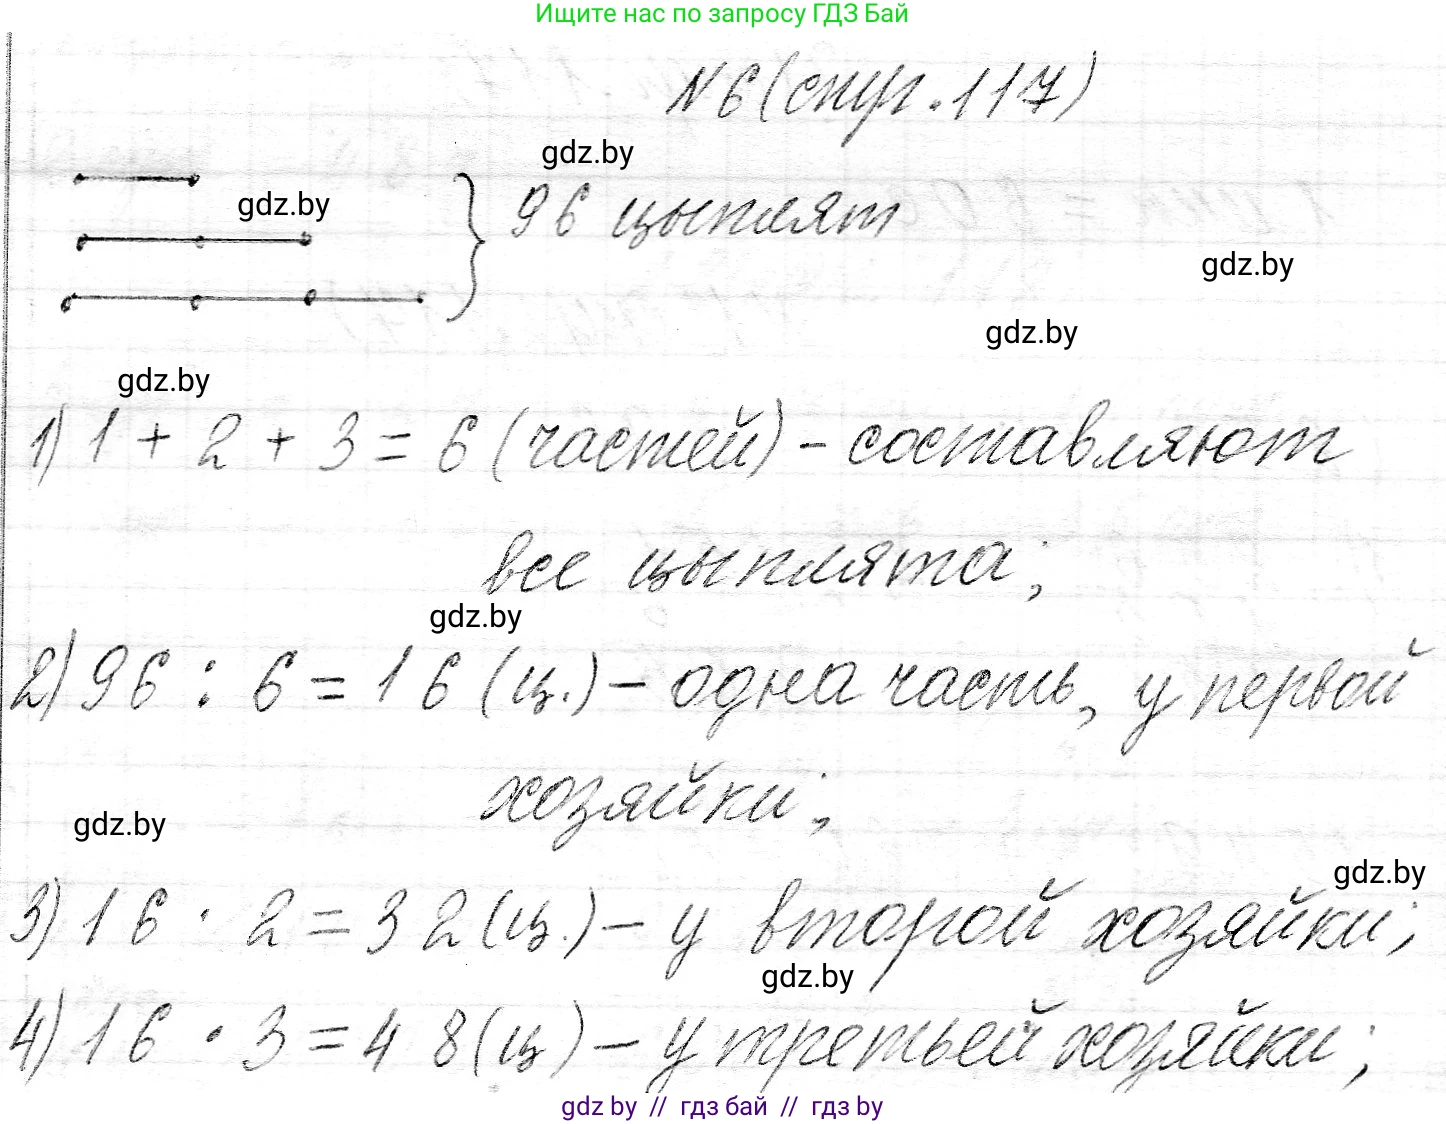 Ищите нас по запросу ГДЗ Бай
N6 (стр. 117)
gdz.by
gdz.by
96 цыплят
gdz.by
gdz.by
gdz.by
1) 1 + 2 + 3 = 6 (частей) - составляют
все цыплята;
gdz.by
2) 96 : 6 = 16 (ц.) - одна часть, у первой
хозяйки;
gdz.by
gdz.by
3) 16 · 2 = 32 (ц.) - у второй хозяйки;
gdz.by
4) 16 · 3 = 48 (ц) - у третьей хозяйки;
gdz by // гдз бай // гдз by